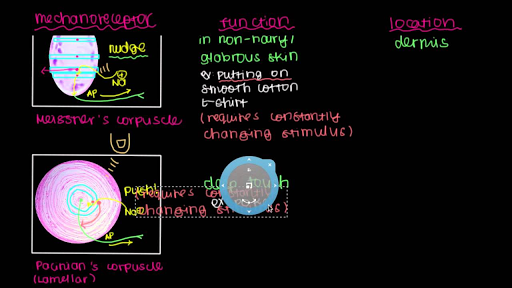 mechanoreceptor
function
location
nudge
Na
AP
Meissner's corpuscle
in non-hairy/
glabrous skin
ex putting on
smooth cotton
t-shirt
(requires constantly
changing stimulus)
dermis
push!
Na
AP
Pacinian's corpuscle
(lamellar)
deep touch
(requires constantly
changing
ex